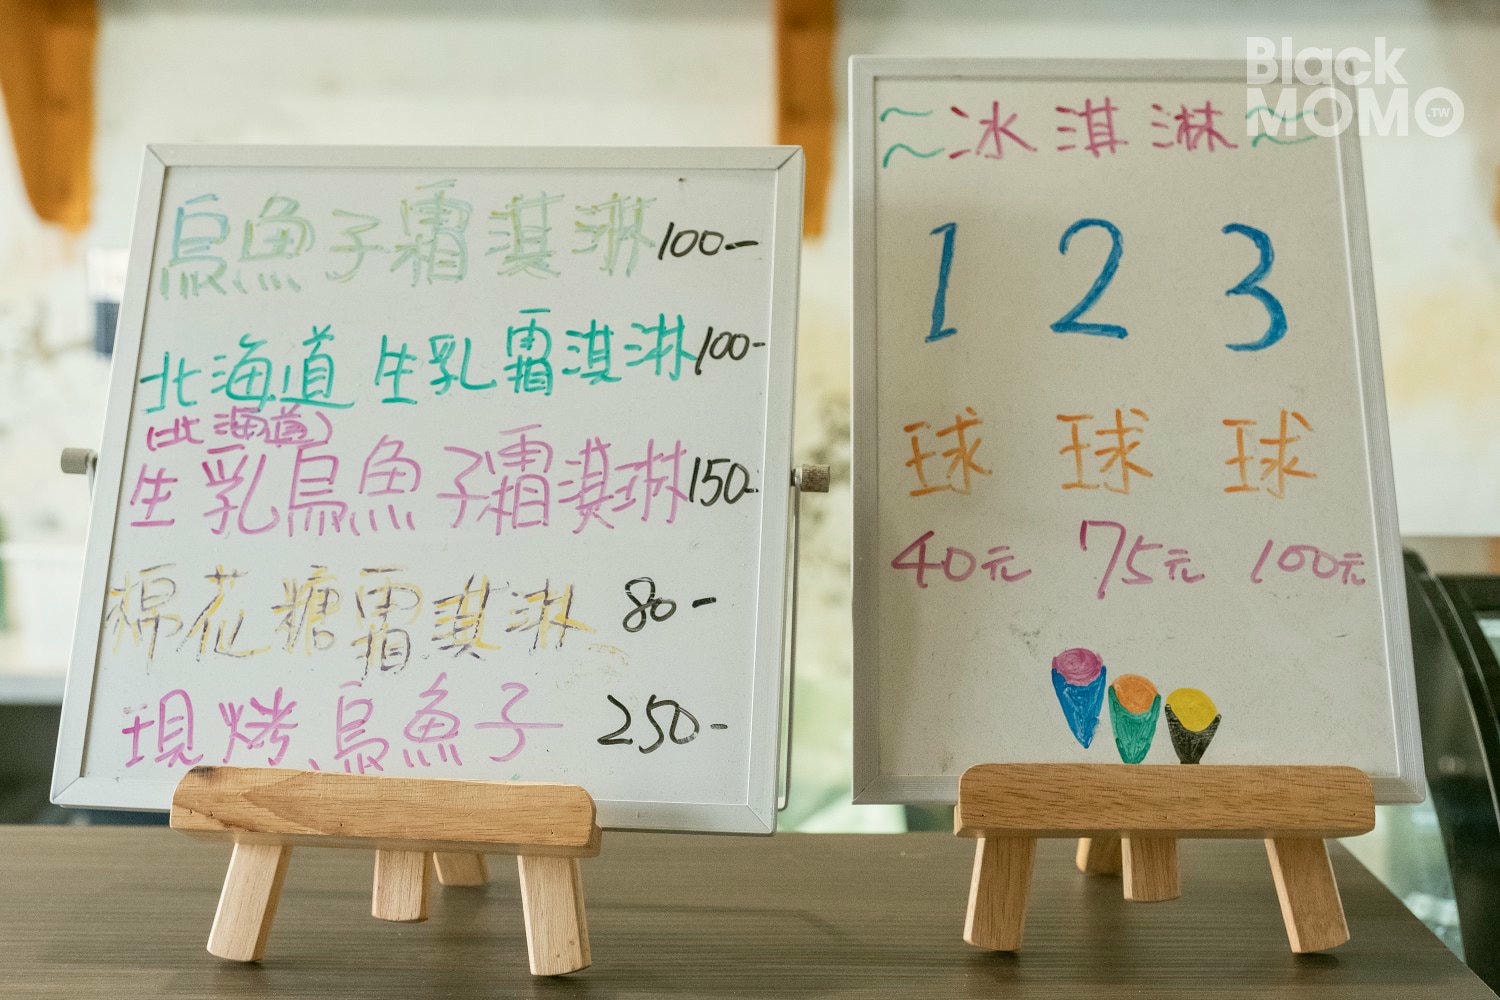 烏魚子霜淇淋 100-
北海道 生乳霜淇淋 100-
(北海道)
生乳烏魚子霜淇淋 150-
棉花糖霜淇淋 80-
現烤烏魚子 250-
~冰淇淋~
1 2 3
球 球 球
40元 75元 100元
Black
MOMO.TW